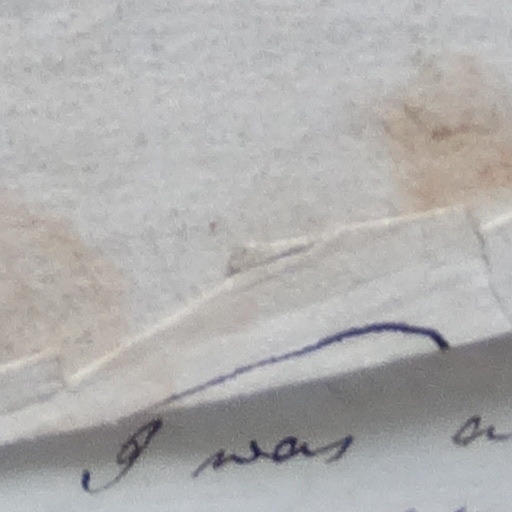 I was